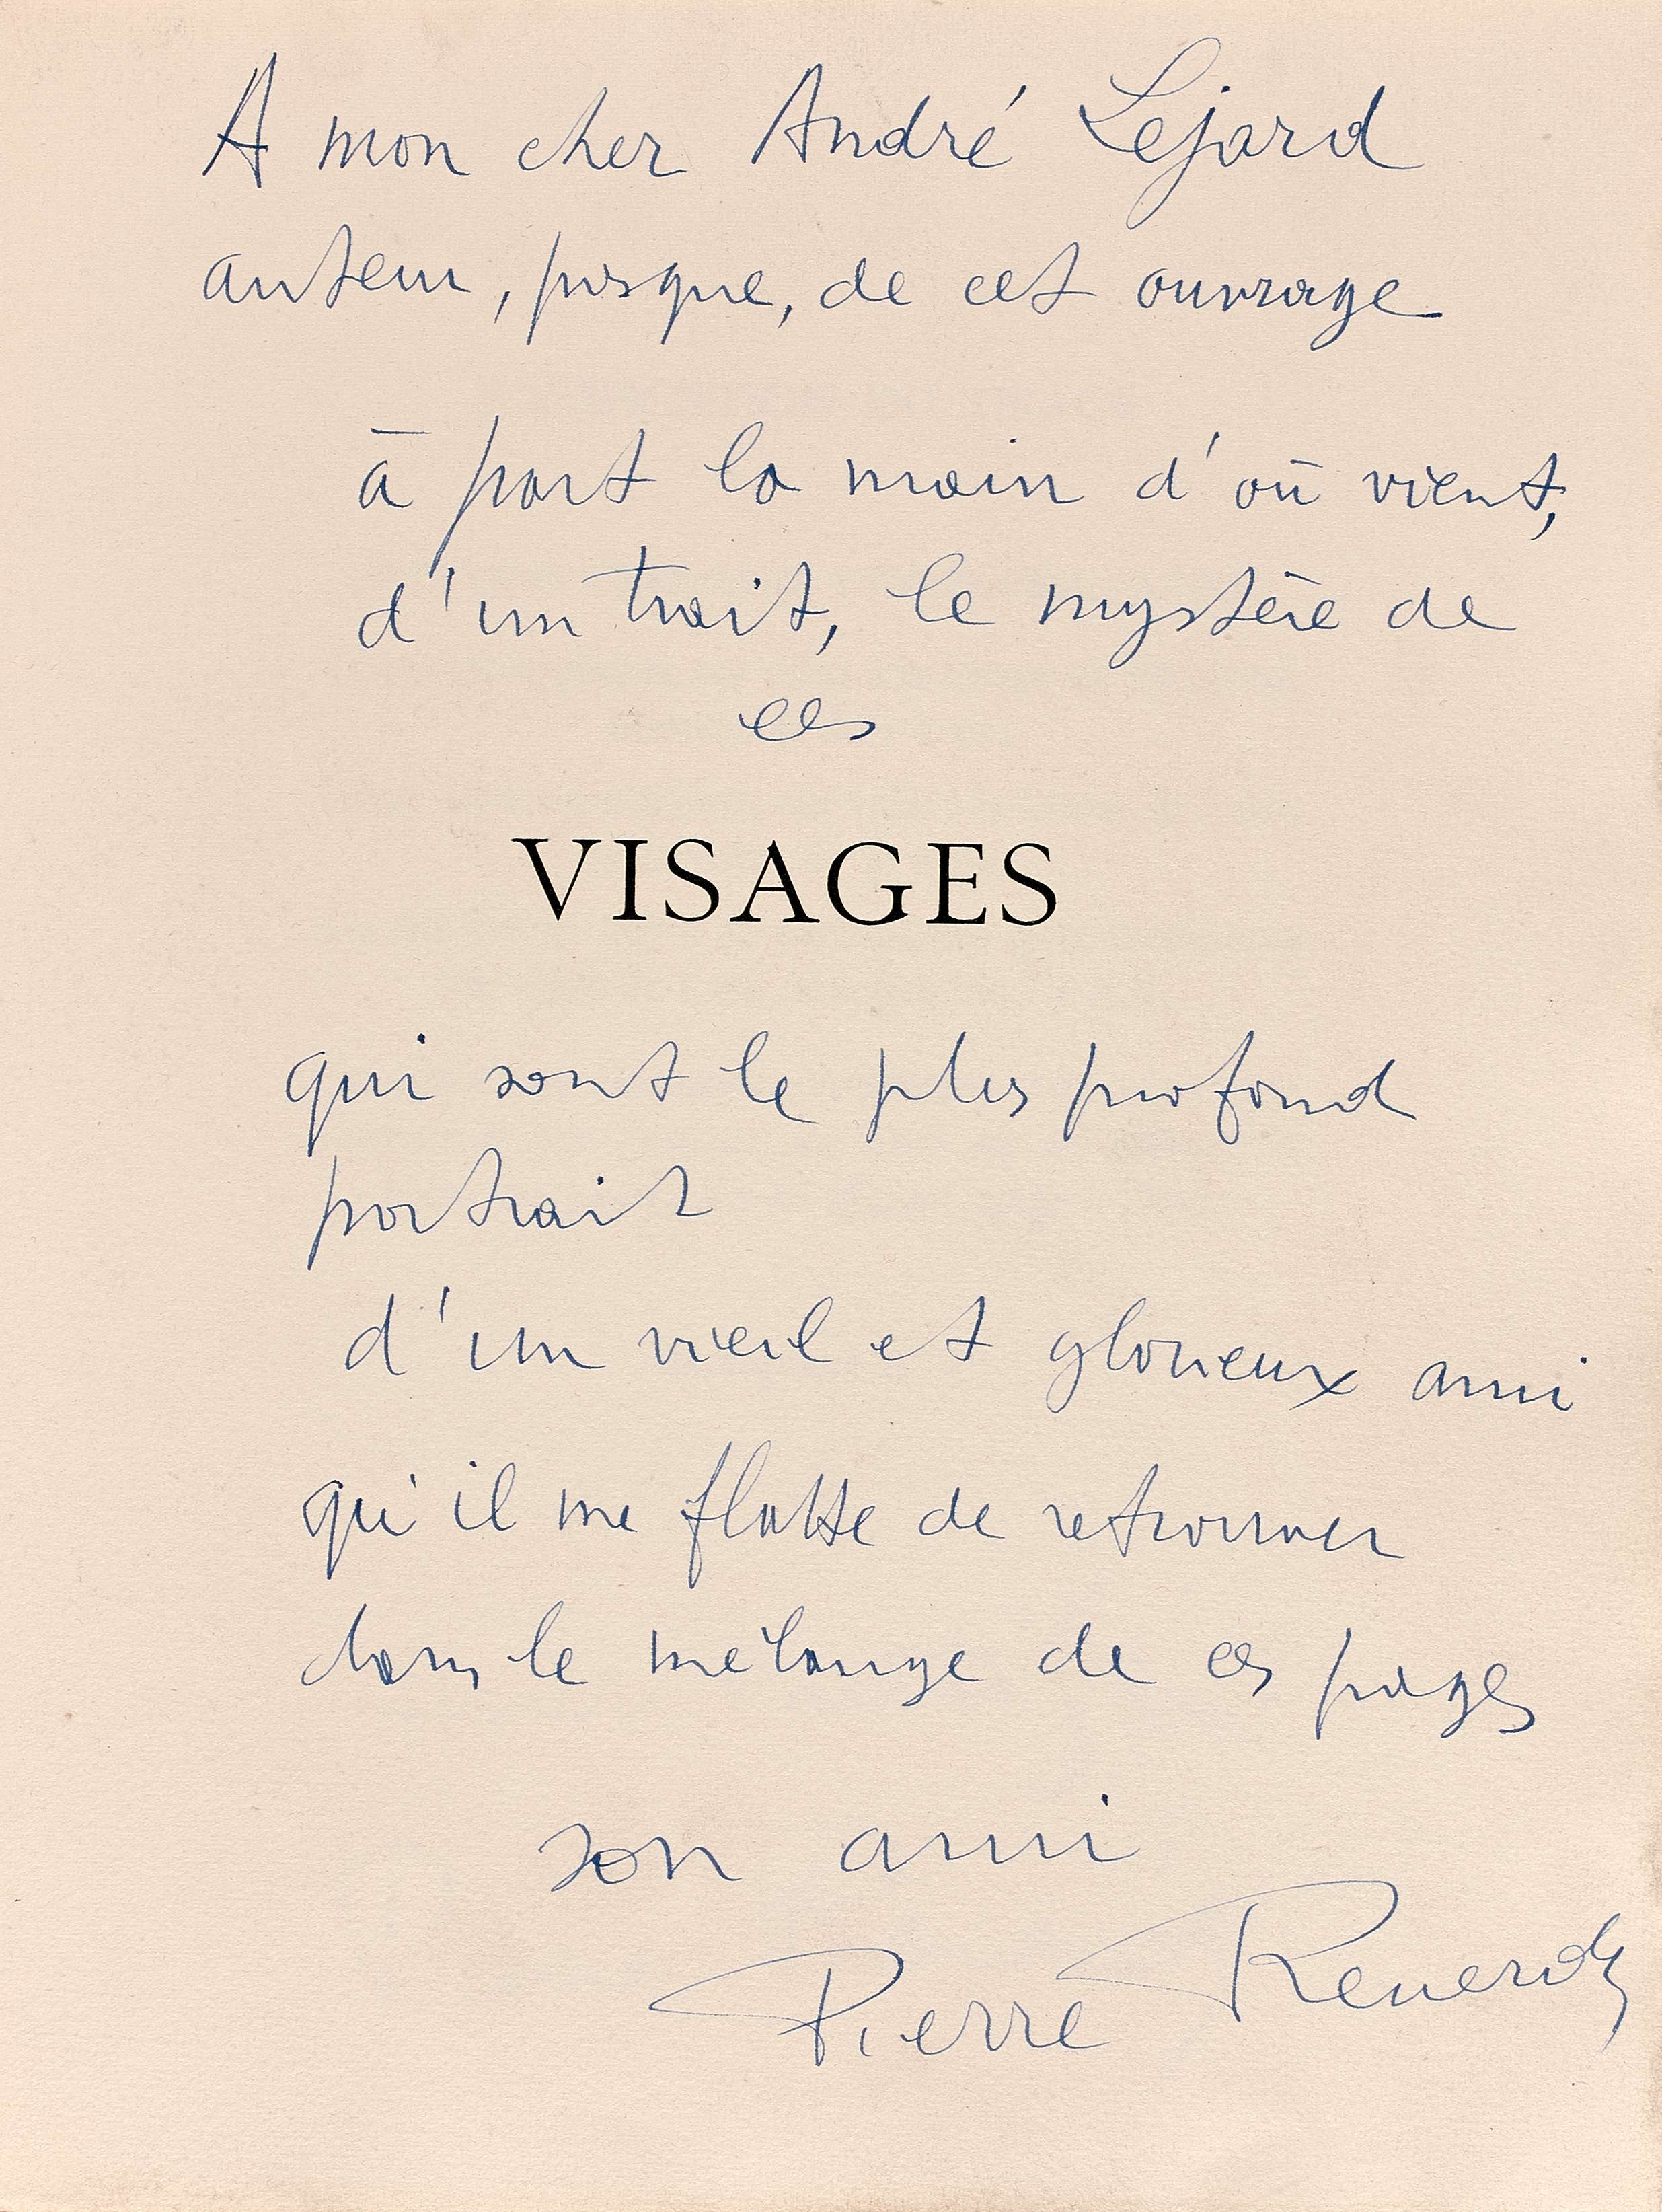 A mon cher André Lejard
auteur, presque, de cet ouvrage
à part la main d'où vient,
d'un trait, le mystère de
ces
VISAGES
qui sont le plus profond
portrait
d'un vieil et glorieux ami
qu'il me flatte de retrouver
dans le mélange de ces pages
son ami
Pierre Reverdy